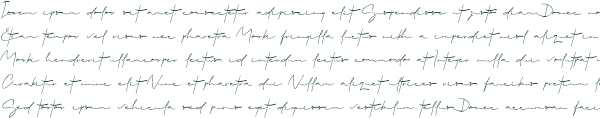 Lorem ipsum dolor sit amet consectetur adipiscing elit Suspendisse ut justo diam Donec no
Etiam tempor vel risus nec pharetra Morbi fringilla lectus nibh a imperdiet nisl aliquet in
Morbi hendrerit ullamcorper lectus id interdum lectus commodo at Integer nulla dui volutpat
Curabitur et nunc elit Nunc et pharetra dui Nullam aliquet ultrices risus faucibus pretium
Sed tortor ipsum vehicula sed purus eget dignissim vestibulum tellus Donec accumsan fauci